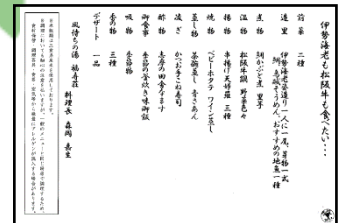 伊勢海老も松阪牛も食べたい・・・
前菜 二種
造里 伊勢海老姿造り一人に一尾、芽物一式
鯛、鳥賊そうめん、おすすめの地魚一種
煮物 鯛かぶと煮 里芋
温物 松阪牛鍋 野菜色々
揚物 串揚げ天婦羅 三種
焼物 ベビーホタテ ワイン蒸し
蒸し物 茶碗蒸し 青さあん
凌ぎ かつお手こね寿司
酢物 志摩の田舎なます
御食事 季節の釜炊き味御飯
吸物 季節物
香の物 三種
デザート 一品
風待ちの湯 福寿荘
料理長 森岡 嘉生